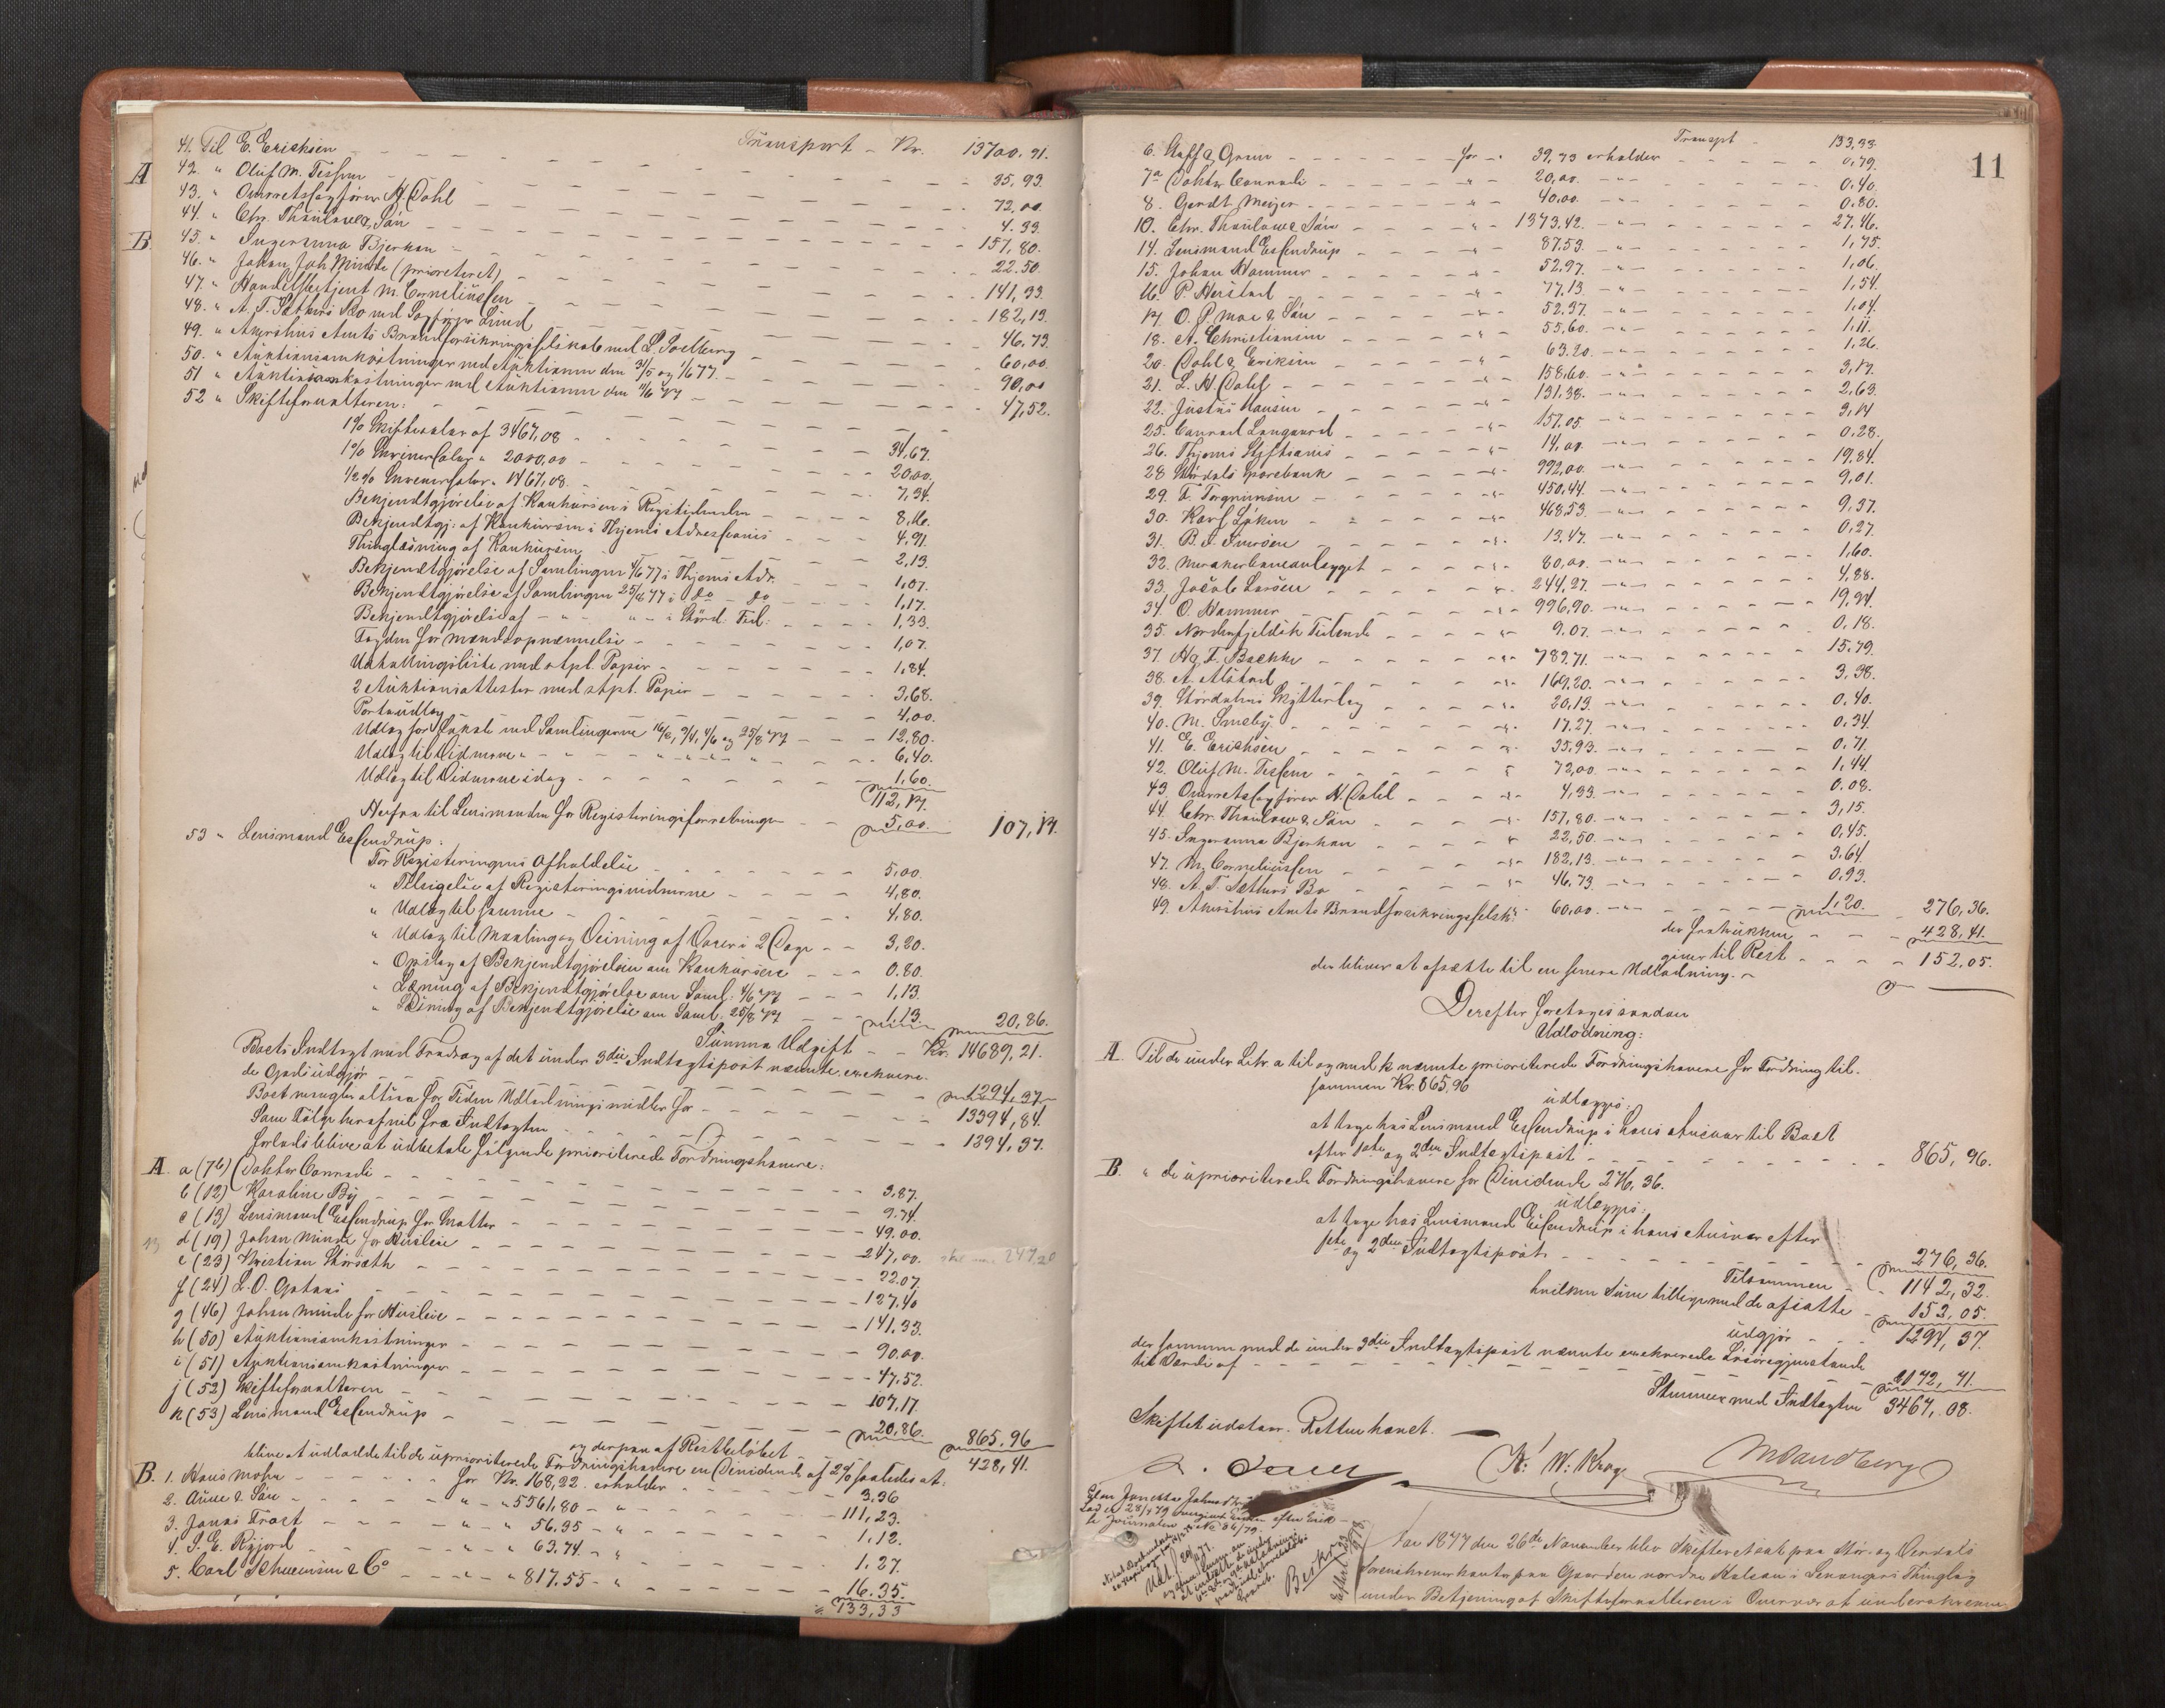 Transport - Kr. 13700.91.
41. Til E. Erichsen - 35,93.
A 42. " Oluf M. Tessem - 72,00.
43. " Overretssagfører H. Dahl - 4.33.
44. " Chr. Thaulow & Søn - 157,80.
B 45. " Ingeranna Bjerkan - 22.50.
46. " Johan Joh Minde (prioriteret) - 141,33.
47. " Handelsbetjent M. Corneliussen - 182,13.
48. " A. T. Sæthers Bo ved Sagfører Lund - 46,73.
49. " Akershus Amts Brandforsikringsselskab ved L. Soelberg - 60,00.
50. " Auktionsomkostninger ved Auktionen den 31/5 og 1/6 77. - 90,00
51 " Auktionsomkostninger ved Auktionen den 11/6 77 - 47,52.
52 " Skifteforvalteren:
1% Skiftesalær af 3467,08 - 34,67.
1% Incaminsalær " 2000,00 - 20,00.
1/2% " 1467,08. - 7,34.
Bekjendtgjørelse af Konkursen i Rigstidende - 8,16.
Bekjendtgj: af Konkursen i Thjems Adresseavis - 4,91.
Thinglæsning af Konkursen - 2,13.
Bekjendtgjørelse af Samlingen 4/6 77 i Thjems Adr. - 1,07.
Bekjendtgjørelse af Samlingen 25/8 77 i do - do - 1,17.
Bekjendtgjørelse af - " - " " - i Størd. Tid: - 1,33.
Tagden for Mændsopnævnelse - 1,07.
Udtællingsliste med stpl. Papir - 1,84.
2 Auktionsattester med stpl. Papir - 3,68.
Portoudlæg - 4,00.
Udlæg for Lokale ved Samlingerne 16/2, 9/4, 4/6 og 25/8 77 - 12,80.
Udlæg til Vidnerne " - " - " - 6,40.
Udlæg til Vidnerne idag - 1,60.
112,17.
Herfra til Lensmanden for Registeringsforretningen - 5,00. 107,17.
53 " Lensmand Essendrup:
For Registeringens Afholdelse - 5,00.
" Tilsigelse af Registeringsvidnerne - 4,80.
" Udlæg til samme - 4,80.
" Udlæg til Maaling og Veining af Varer i 2 Dage - 3,20.
" Opslag af Bekjendtgjørelsen om Konkursen - 0.80.
" Læsning af Bekjendtgjørelse om Saml: 4/6 77 - 1,13.
" Læsning af Bekjendtgjørelse om Saml. 25/8 77 - 1,13. 20,86.
Summa Udgift - Kr. 14689,21.
Boets Indtægt med Fradrag af det under 3die Indtægtspost nævnte exekvere-
de Gods udgjør - 1294,37.
Boet mangler altsaa for Tiden Udlodningsmidler for - 13394,84.
Som Følge heraf vil fra Indtægten - 1294,37.
forlods blive at udbetale følgende prioriterede Fordringshavere:
A. a (7b) Doktor Conradi - 3,87.
b (12) Karoline By - 9.74.
c (13) Lensmand Essendrup for Skatter - 49.00.
d (19) Johan Minde for Husleie - 247,00. 247,20
e (23) Kristian Størsæth - 22.07.
f (24) L. O. Opstad - 127,40
g (46) Johan Minde for Husleie - 141.33.
h (50) Auktionsomkostninger - 90,00.
i (51) Auktionsomkostninger - 47,52.
j (52) Skifteforvalteren - 107,17
k (53) Lensmand Essendrup - 20,86. 865,96
og derpaa af Restbeløbet - 428,41.
blive at udlodde til de uprioriterede Fordringshavere en Dividende af 2% saaledes at:
B. 1. Hans Mohn - for Kr. 168,22 erholder - 3,36
2. Aune & Søn - " " 5561,80 - " - 111,23.
3. Jonas Troet - " " 56,35 - " - 1,12.
4. S. E. Rygjord - " " 63.74 - " - 1.27.
5. Carl Schwensen & Co - " " 817.55 - " - 16.35.
133,33
11
Transpt - 133,33
6. Huff & Gram - for - 39,73 erholder - 0,79.
7a Doktor Conradi - " - 20,00. - " - 0,40.
8. Gerdt Meyer - " - 40,00. - " - 0.80.
10. Chr. Thaulow & Søn - " - 1373.42. - " - 27,46.
14. Lensmand Essendrup - " - 87.53. - " - 1,75.
15. Johan Hammer - 52,97. - " - 1,06.
16. P. Herstad - 77,13. - " - 1,54.
17 O. P. Moe & Søn - 52.37. - " - 1,04.
18. A. Christiansen - 55.60. - " - 1,11.
20. Dahl & Eriksen - 63.20. - " - 1,26.
21. L. H. Dahl - 158.60. - " - 3,17.
22. Justus Hansen - 131.38. - " - 2,63.
25. Conrad Langaard - 157.05. - " - 3,14
26. Thjems Stiftsavis - 14,00. - " - 0,28.
28 Størdals Sparebank - 992,00. - " - 19,84.
29. T. Torgrimsen - 450,44. - " - 9,01.
30. Karl Løken - 468,53. - " - 9,37.
31. B. S. Iversen - 13,47. - " - 0,27.
32. Merakerbaneanlægget - 80,00. - " - 1,60.
33. Jacob Larsen - 244,27. - " - 4,88.
34. O. Hammer - 996,90. - " - 19,94.
35. Nordenfjeldsk Tidende - 9.07. - " - 0,18.
37. Ag. F. Bachke - 789,71. - " - 15.79.
38. A. Alstad - 169,20. - " - 3,38.
39. Stordalens Skytterlag - 20,13. - " - 0,40.
40. M. Smeby - 17,27. - " - 0,34.
41. E. Erichsen - 35,93. - " - 0,71.
42. Oluf M. Tessem - 72,00. - " - 1,44.
43. Overretssagfører H. Dahl - 4,33. - " - 0.08.
44. Chr. Thaulow & Søn - 157,80. - " - 3,15.
45. Ingeranna Bjerkan - 22,50. - " - 0,45.
47. M. Corneliussen - 182,13. - " - 3,64.
48. A. T. Sæthers Bo - 46,73. - " - 0,93.
49. Akershus Amts Brandforsikringsselsk: - 60,00. - " - 1,20. 276,36.
der fratrukken - 428,41.
giver til Rest - 152,05.
der bliver at afsætte til en senere Udlodning. -
Derefter foretoges saadan
Udlodning:
A. Til de under Litr. a til og med k nævnte prioriterede Fordringshavere for Fordring til-
sammen Kr. 865,96
udlægges:
at tage hos Lensmand Essendrup i hans Ansvar til Boet
efter 1ste og 2den Indtægtspost - 865,96.
B " de uprioriterede Fordringshavere for Dividende 276,36.
udlægges:
at tage hos Lensmand Essendrup i hans Ansvar efter
1ste og 2den Indtægtspost - 276,36.
Tilsammen - 1142,32.
hvilken Sum tillagt med de afsatte - 152,05.
udgjør - 1294,37.
der sammen med de under 3die Indtægtspost nævnte exekverede Løsøregjenstande
til Værdi af - 2172,71.
Stemmer med Indtægten 3467,08.
Skiftet udstaar. Retten hævet.
K: W: Krog
M Sandberg
Aar 1877 den 26de November blev Skifteret sat paa Stør- og Verdals
Sorenskriverkontor paa Gaarden nordre Kalsaa i Levangers Thinglag
under Betjening af Skifteforvalteren i Overvær af underskrevne